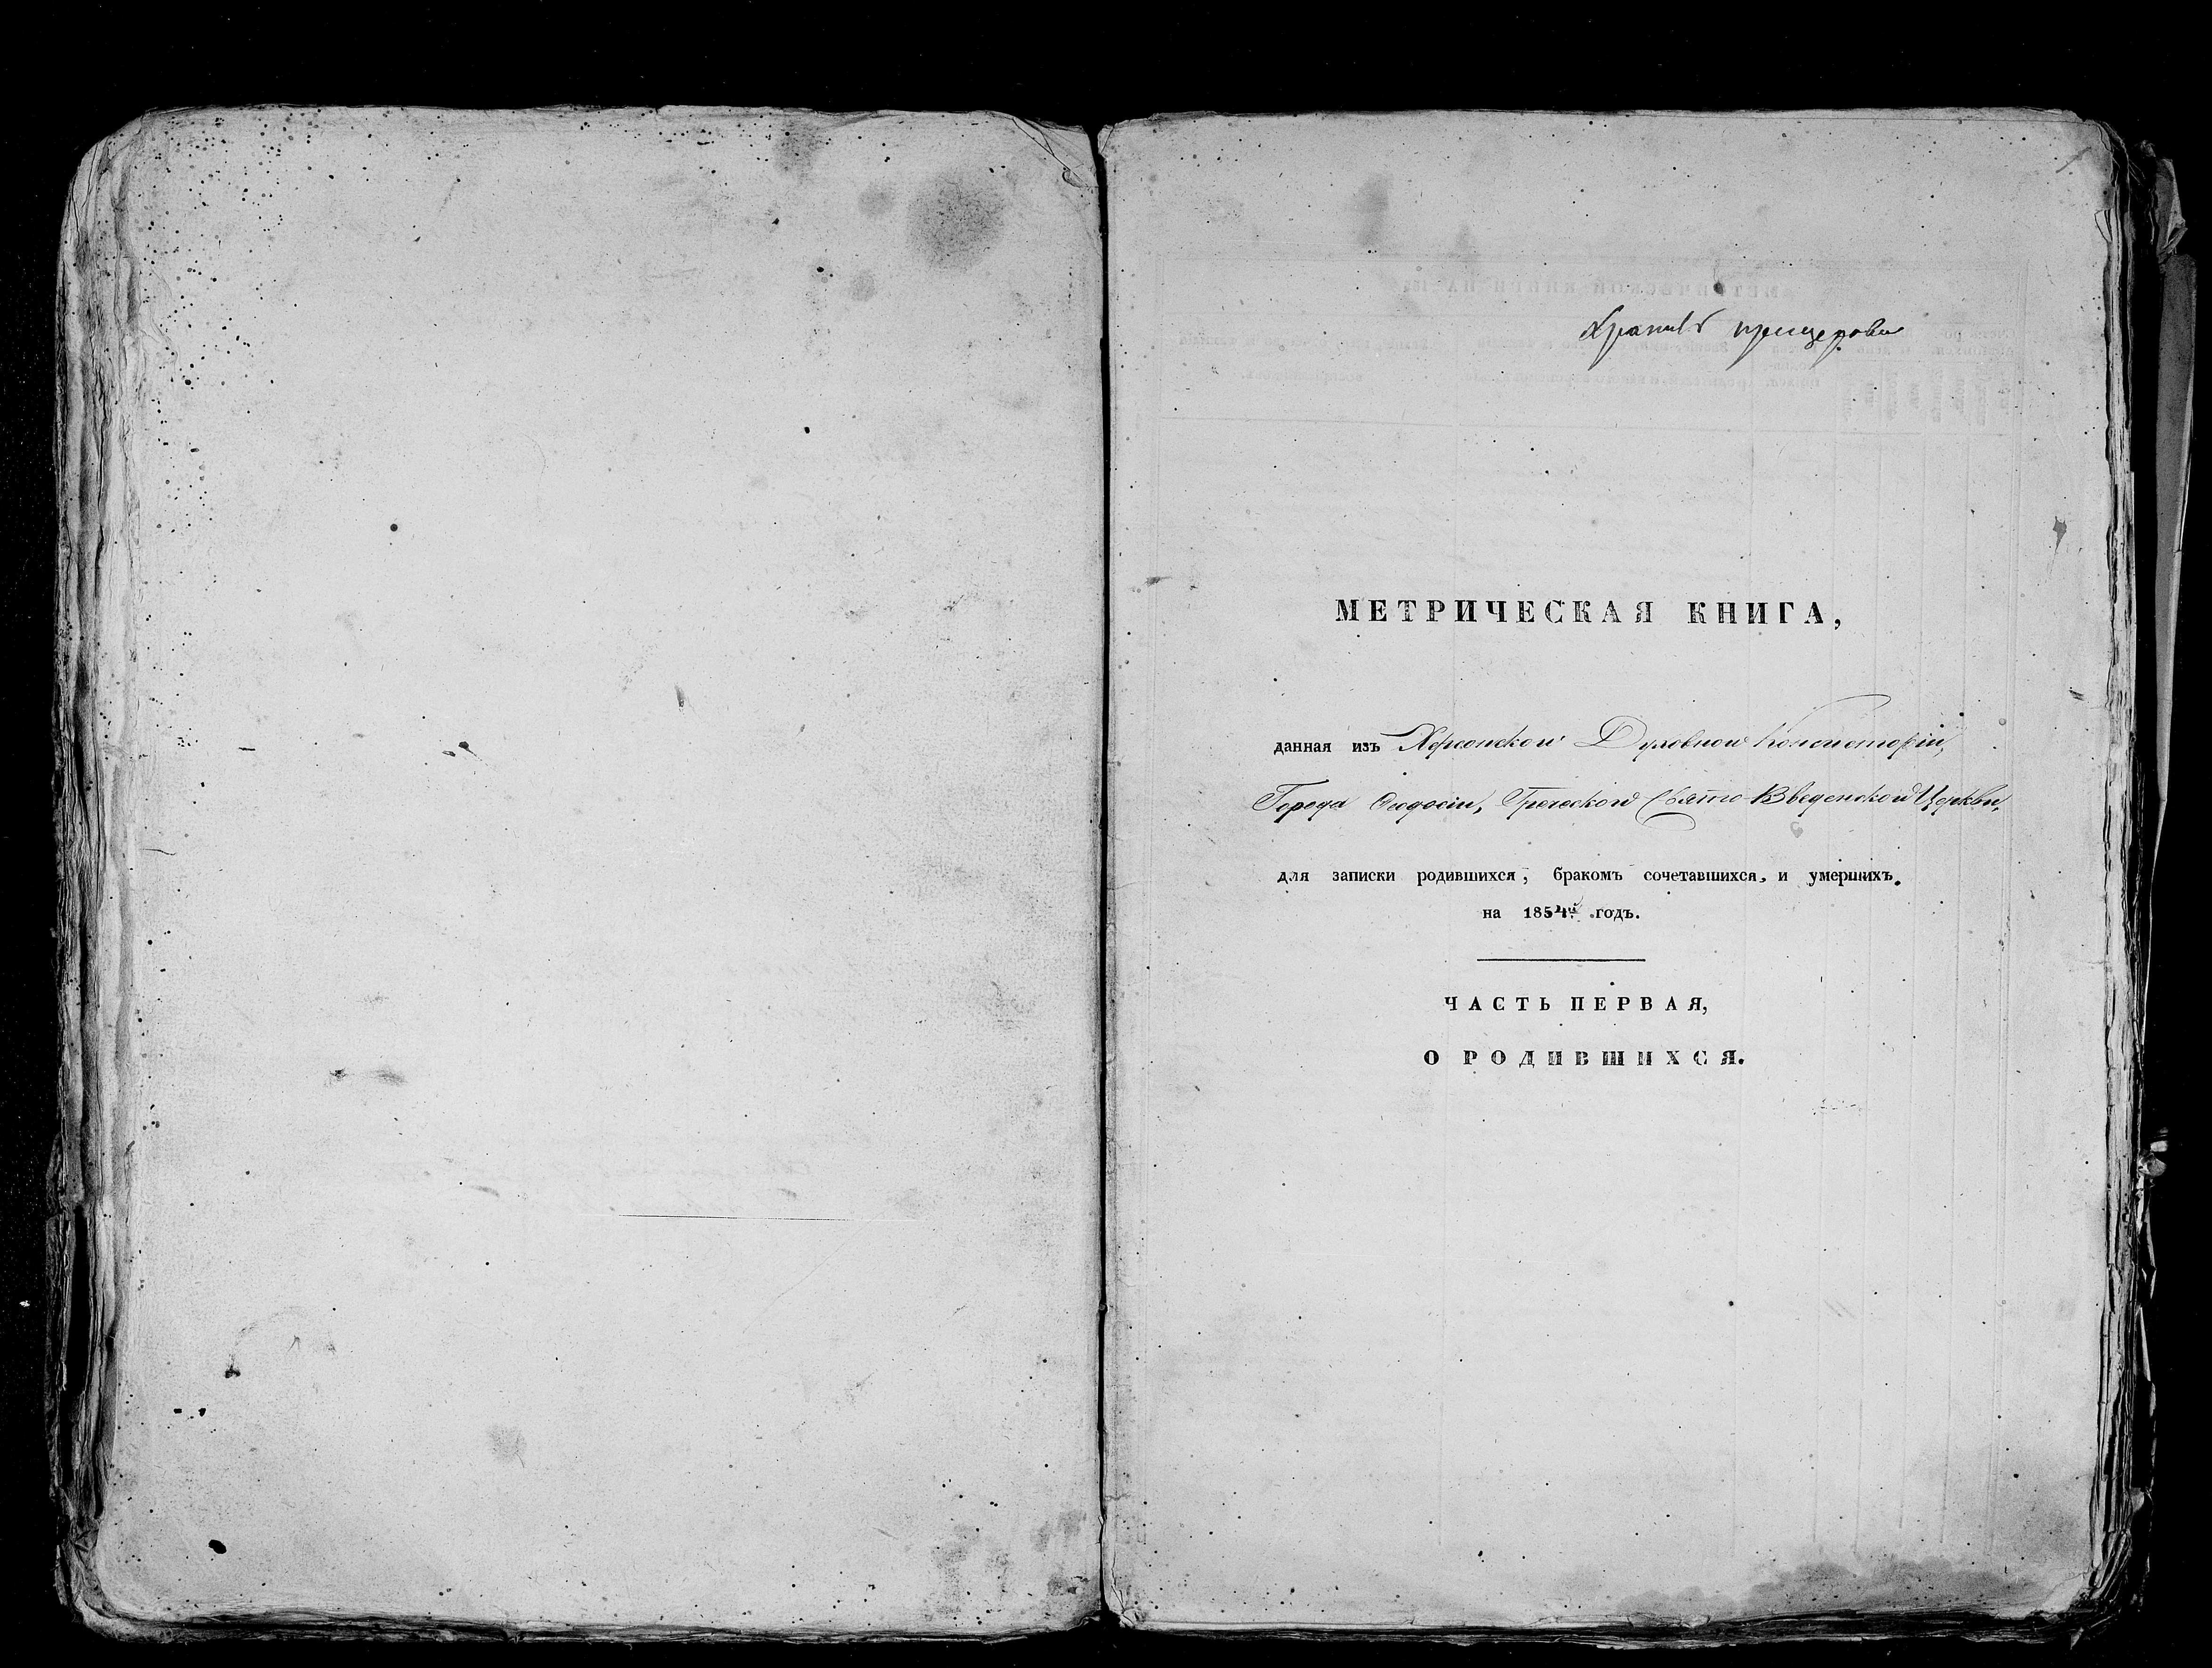 Хранить при церкви
МЕТРИЧЕСКАЯ КНИГА,
данная изъ Херсонской Духовной Консисторіи,
Города Ѳеодосіи, Греческой Свято-Введенской Церкви,
для записки родившихся, бракомъ сочетавшихся, и умершихъ.
на 1854й годъ.
ЧАСТЬ ПЕРВАЯ,
О РОДИВШИХСЯ.